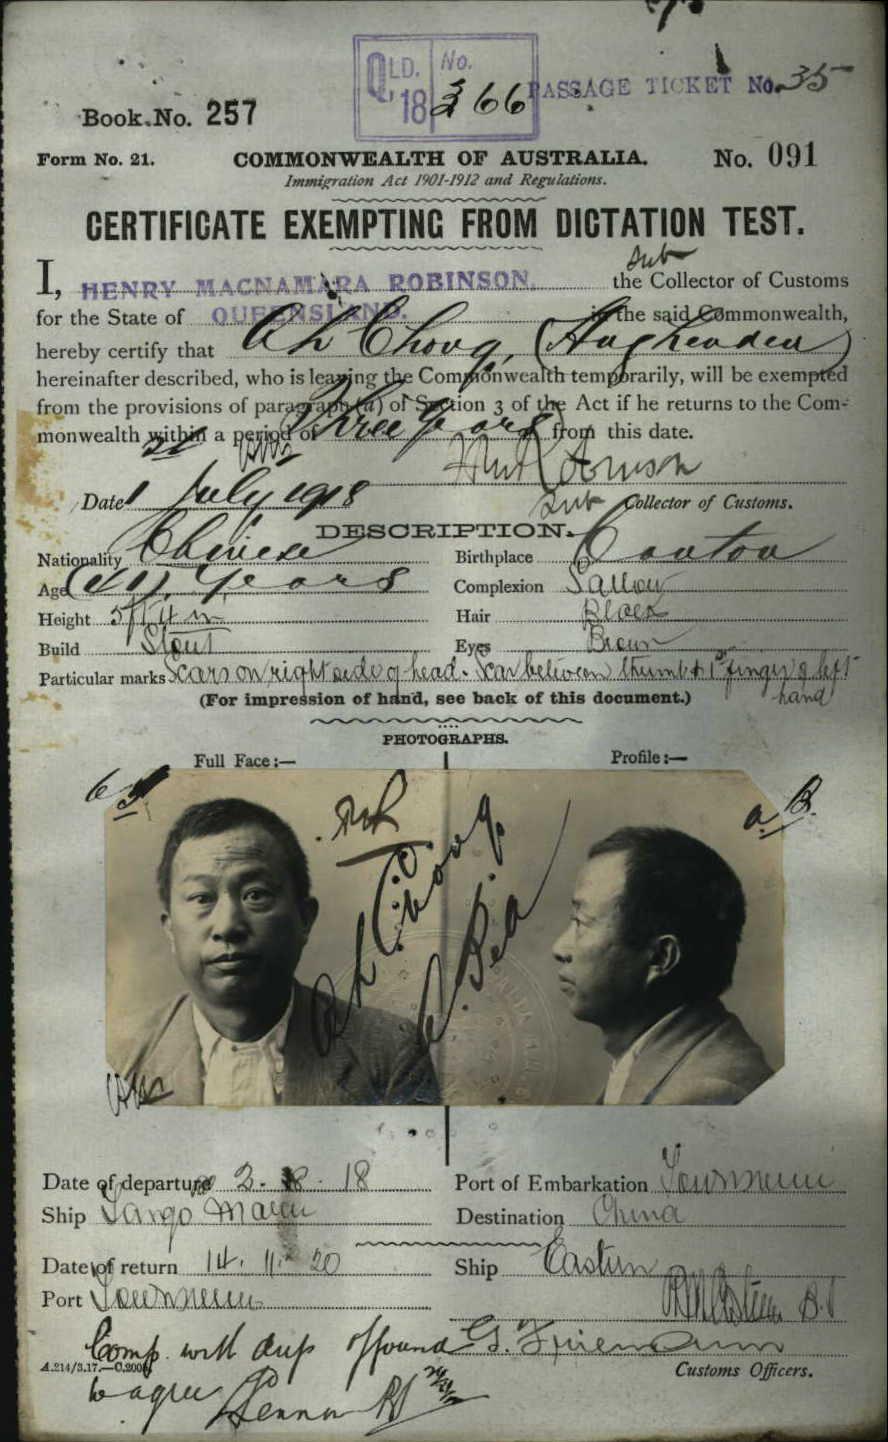 QLD. No.
'18 366 PASSAGE TICKET No. 35
Book No. 257
Form No. 21. COMMONWEALTH OF AUSTRALIA. No. 091
Immigration Act 1901-1912 and Regulations.
CERTIFICATE EXEMPTING FROM DICTATION TEST.
Sub
I, HENRY MACNAMARA ROBINSON. the Collector of Customs
for the State of QUEENSLAND. in the said Commonwealth,
hereby certify that Ah Chong, (Hughenden)
hereinafter described, who is leaving the Commonwealth temporarily, will be exempted
from the provisions of paragraph (a) of Section 3 of the Act if he returns to the Com-
monwealth within a period of Three Years from this date.
Date 1st July 1918 Sub Collector of Customs.
DESCRIPTION.
Nationality Chinese Birthplace Canton
Age (41) Years Complexion Sallow
Height 5ft 4 in Hair Black
Build Stout Eyes Brown
Particular marks Scars on right side of head. Scar between thumb & 1st finger of left
hand
(For impression of hand, see back of this document.)
PHOTOGRAPHS.
Full Face:— Profile:—
Ah Chong
Date of departure 2. 8. 18 Port of Embarkation Townsville
Ship Tango Maru Destination China
Date of return 14. 11. 20 Ship Eastern
Port Townsville
Comp. with dup & found G.
A.214/3.17.—C.200
to agree
Customs Officers.